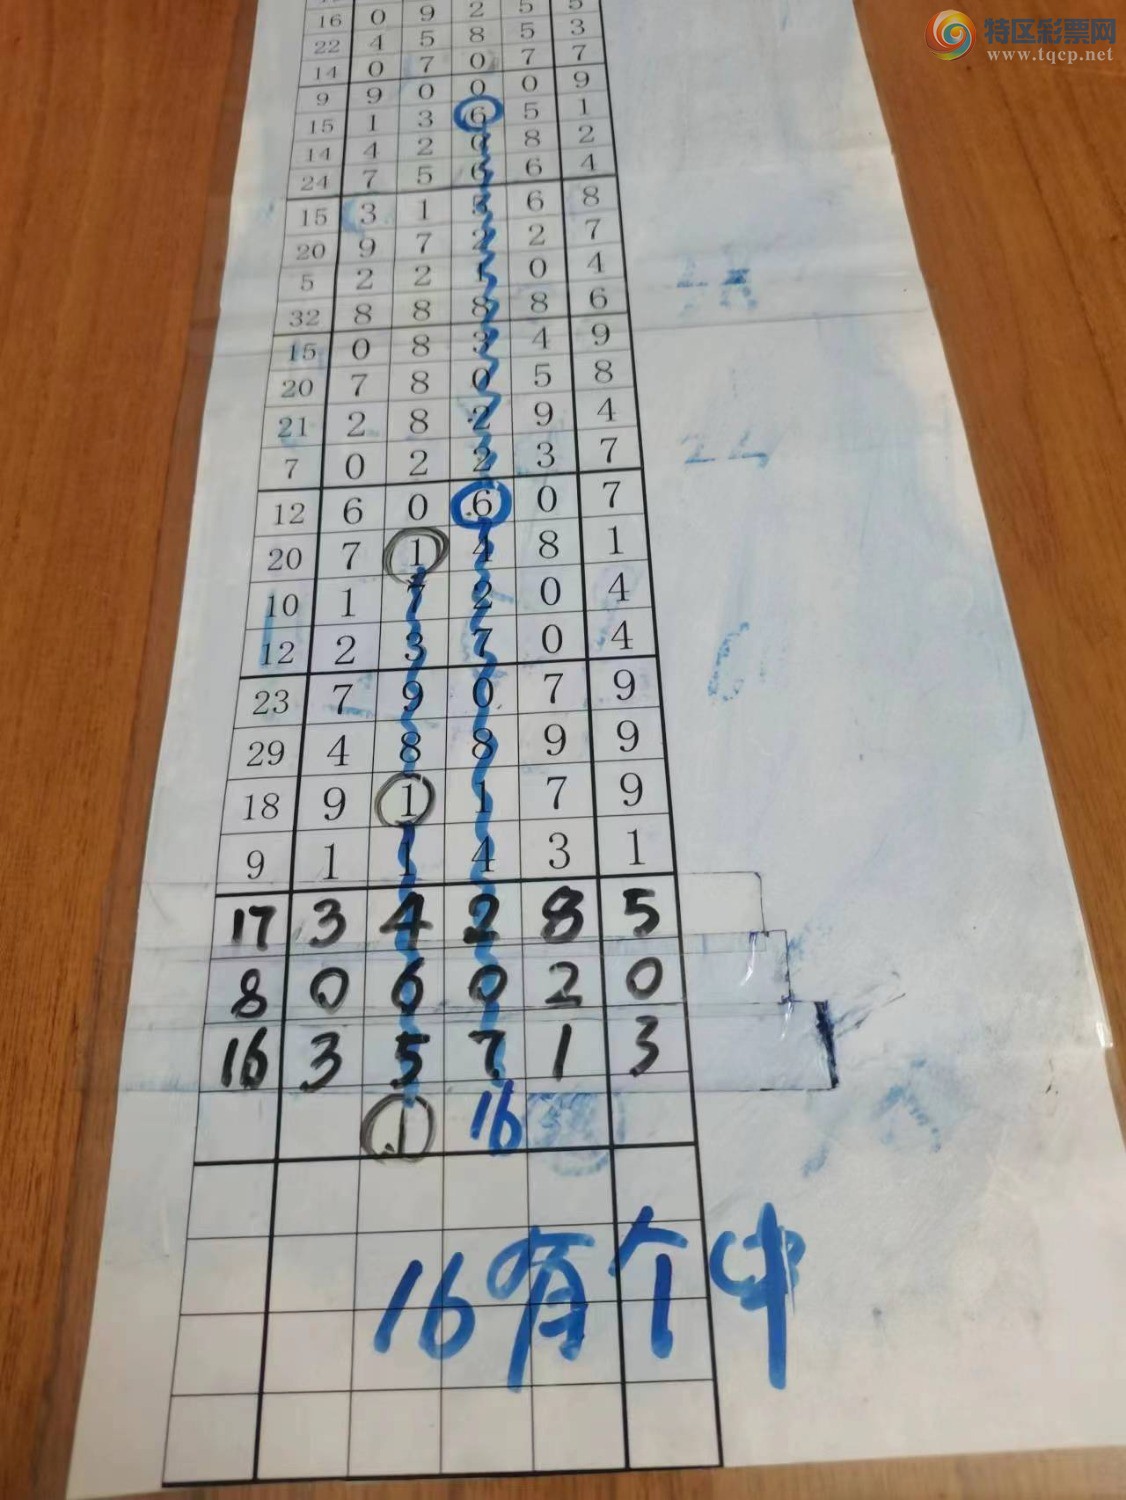 特区彩票网
www.tqcp.net
16 0 9 2 5 5
22 4 5 8 5 3
14 0 7 0 7 7
9 9 0 0 0 9
15 1 3 6 5 1
14 4 2 8 2
24 7 5 6 6 4
15 3 1 5 6 8
20 9 7 2 2 7
5 2 2 1 0 4
32 8 8 8 8 6
15 0 8 3 4 9
20 7 8 0 5 8
21 2 8 2 9 4
7 0 2 2 3 7
12 6 0 6 0 7
20 7 1 4 8 1
10 1 7 2 0 4
12 2 3 7 0 4
23 7 9 0 7 9
29 4 8 8 9 9
18 9 1 1 7 9
9 1 1 4 3 1
17 3 4 2 8 5
8 0 6 0 2 0
16 3 5 7 1 3
1 16
16有个中